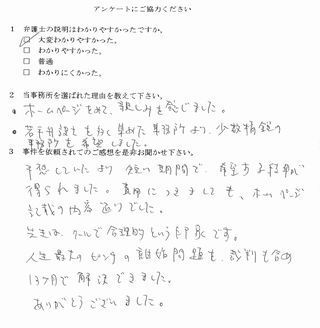 アンケートにご協力ください
1 弁護士の説明はわかりやすかったですか。
□ 大変わかりやすかった。
□ わかりやすかった。
□ 普通
□ わかりにくかった。
2 当事務所を選ばれた理由を教えて下さい。
• ホームページをみて、親しみを感じました。
• 若手弁護士を多く集めた事務所より、少数精鋭の
事務所を希望しました。
3 事件を依頼されてのご感想を是非お聞かせ下さい。
予想していたより短い期間で、希望する結果が
得られました。費用につきましても、ホームページ
記載の内容通りでした。
先生は、クールで合理的という印象です。
人生最大のピンチの離婚問題も、裁判も含め
13ヶ月で解決できました。
ありがとうございました。